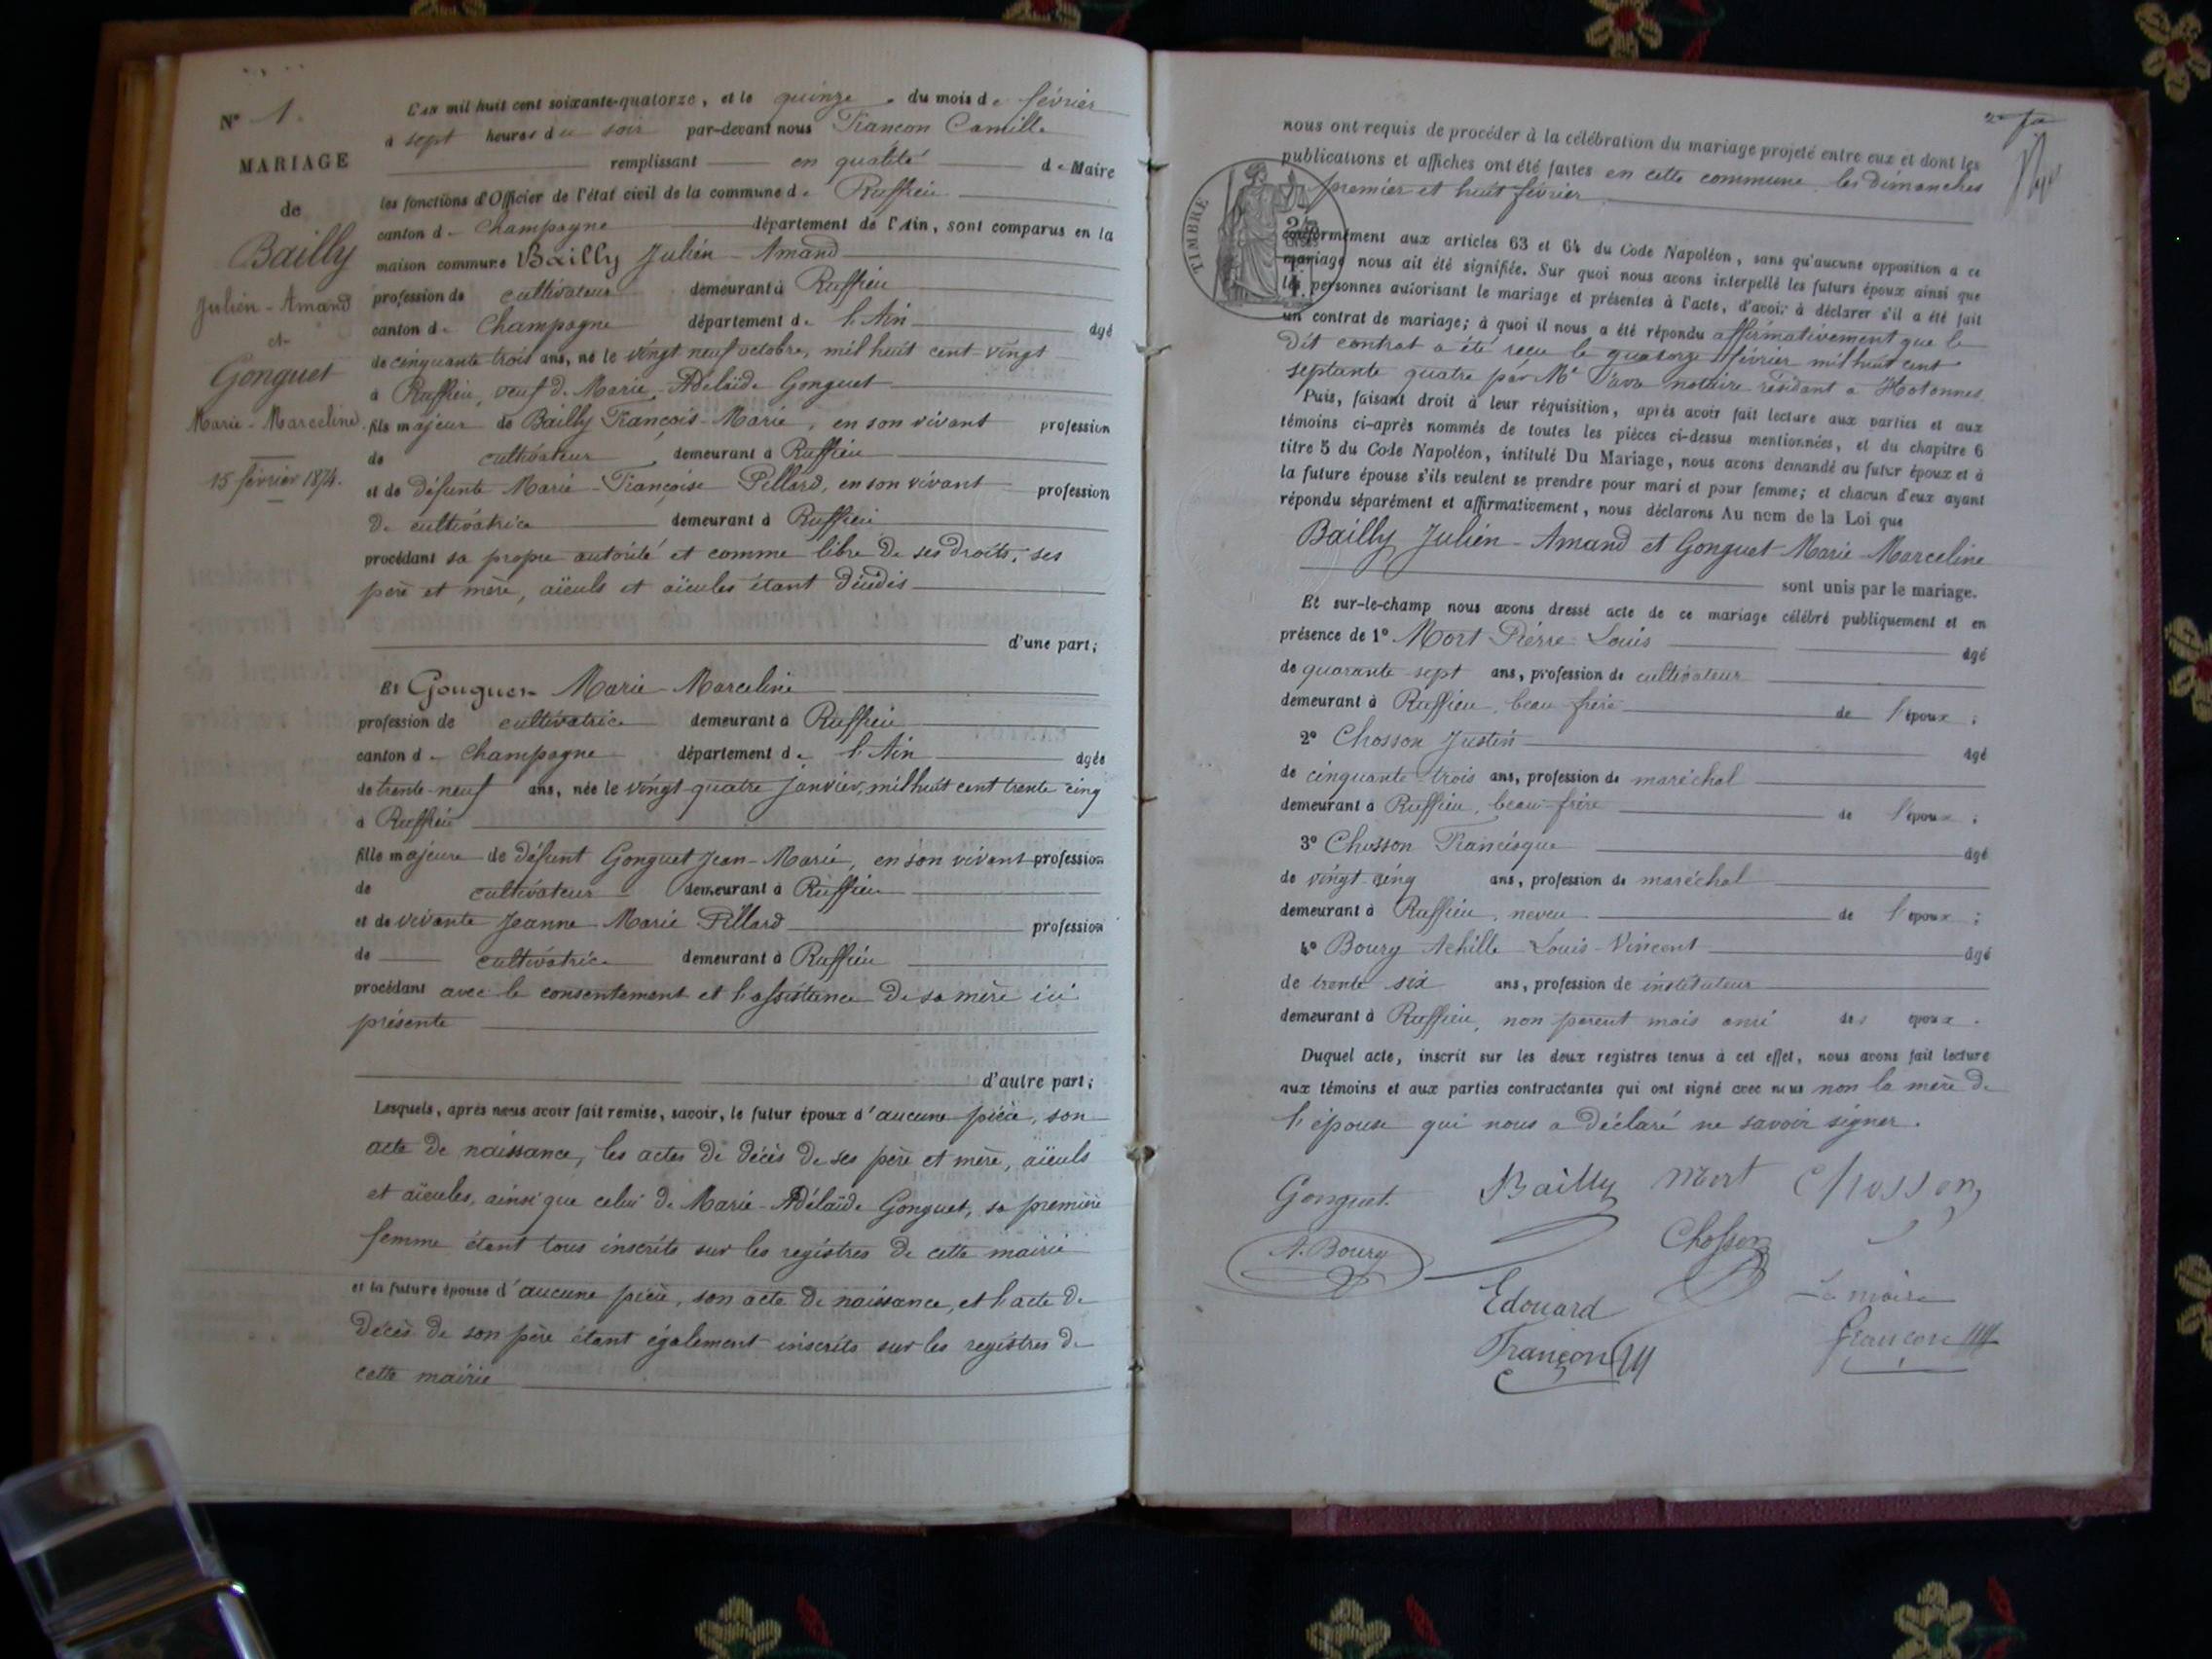 N° 1.
MARIAGE
de
Bailly
Julien-Amand
et
Gonguet
Marie-Marceline
15 février 1874.
L'an mil huit cent soixante-quatorze, et le quinze du mois de février
à sept heures du soir par-devant nous Françon Camille
remplissant en qualité de Maire
les fonctions d'Officier de l'état civil de la commune de Ruffieu
canton de Champagne département de l'Ain, sont comparus en la
maison commune Bailly Julien-Amand
profession de cultivateur demeurant à Ruffieu
canton de Champagne département de l'Ain âgé
de cinquante trois ans, né le vingt neuf octobre, mil huit cent vingt
à Ruffieu, veuf de Marie Adélaïde Gonguet
fils majeur de Bailly François-Marie, en son vivant profession
de cultivateur demeurant à Ruffieu
et de défunte Marie-Françoise Pillard, en son vivant profession
de cultivatrice demeurant à Ruffieu
procédant sa propre autorité et comme libre de ses droits, ses
père et mère, aïeuls et aïeules étant décédés
d'une part;
Et Gonguet Marie-Marceline
profession de cultivatrice demeurant à Ruffieu
canton de Champagne département de l'Ain âgée
de trente-neuf ans, née le vingt-quatre Janvier, mil huit cent trente cinq
à Ruffieu
fille majeure de défunt Gonguet Jean-Marie, en son vivant profession
de cultivateur demeurant à Ruffieu
et de vivante Jeanne-Marie Pillard profession
de cultivatrice demeurant à Ruffieu
procédant avec le consentement et l'assistance de sa mère ici
présente
d'autre part;
Lesquels, après nous avoir fait remise, savoir, le futur époux d'aucune pièce, son
acte de naissance, les actes de décès de ses père et mère, aïeuls
et aïeules, ainsi que celui de Marie-Adélaïde Gonguet, sa première
femme étant tous inscrits sur les registres de cette mairie
et la future épouse d'aucune pièce, son acte de naissance, et l'acte de
décès de son père étant également inscrits sur les registres de
cette mairie
nous ont requis de procéder à la célébration du mariage projeté entre eux et dont les
publications et affiches ont été faites en cette commune les dimanches
premier et huit février
TIMBRE
conformément aux articles 63 et 64 du Code Napoléon, sans qu'aucune opposition à ce
mariage nous ait été signifiée. Sur quoi nous avons interpellé les futurs époux ainsi que
les personnes autorisant le mariage et présentes à l'acte, d'avoir à déclarer s'il a été fait
un contrat de mariage; à quoi il nous a été répondu affirmativement que le
dit contrat a été reçu le quatorze février mil huit cent
septante quatre par Me notaire résidant à Hotonnes.
Puis, faisant droit à leur réquisition, après avoir fait lecture aux parties et aux
témoins ci-après nommés de toutes les pièces ci-dessus mentionnées, et du chapitre 6
titre 5 du Code Napoléon, intitulé Du Mariage, nous avons demandé au futur époux et à
la future épouse s'ils veulent se prendre pour mari et pour femme; et chacun d'eux ayant
répondu séparément et affirmativement, nous déclarons Au nom de la Loi que
Bailly Julien-Amand et Gonguet Marie-Marceline
sont unis par le mariage.
Et sur-le-champ nous avons dressé acte de ce mariage célébré publiquement et en
présence de 1° Mort Pierre-Louis âgé
de quarante-sept ans, profession de cultivateur
demeurant à Ruffieu, beau-frère de l'époux;
2° Chosson Justin âgé
de cinquante-trois ans, profession de maréchal
demeurant à Ruffieu, beau-frère de l'époux;
3° Chosson Francisque âgé
de vingt-cinq ans, profession de maréchal
demeurant à Ruffieu, neveu de l'époux;
4° Boury Achille-Louis-Vincent âgé
de trente six ans, profession de instituteur
demeurant à Ruffieu, non parent mais ami des époux.
Duquel acte, inscrit sur les deux registres tenus à cet effet, nous avons fait lecture
aux témoins et aux parties contractantes qui ont signé avec nous non la mère de
l'épouse qui nous a déclaré ne savoir signer.
Gonguet. Bailly Mort Chosson
A. Boury Chosson
Edouard Le maire
Françon Françon